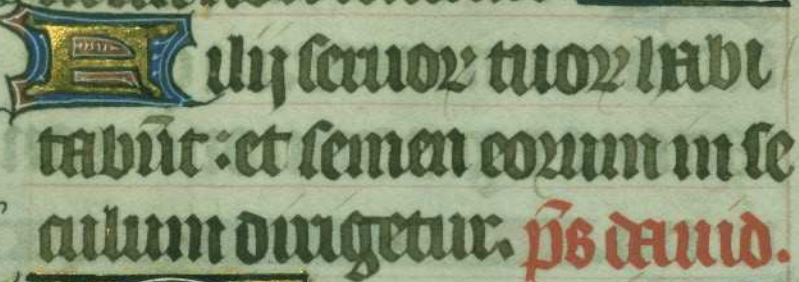 Filij seruoꝝ tuoꝝ habi
tabūt: et semen eorum in se
culum dirigetur. p̄s dauid.